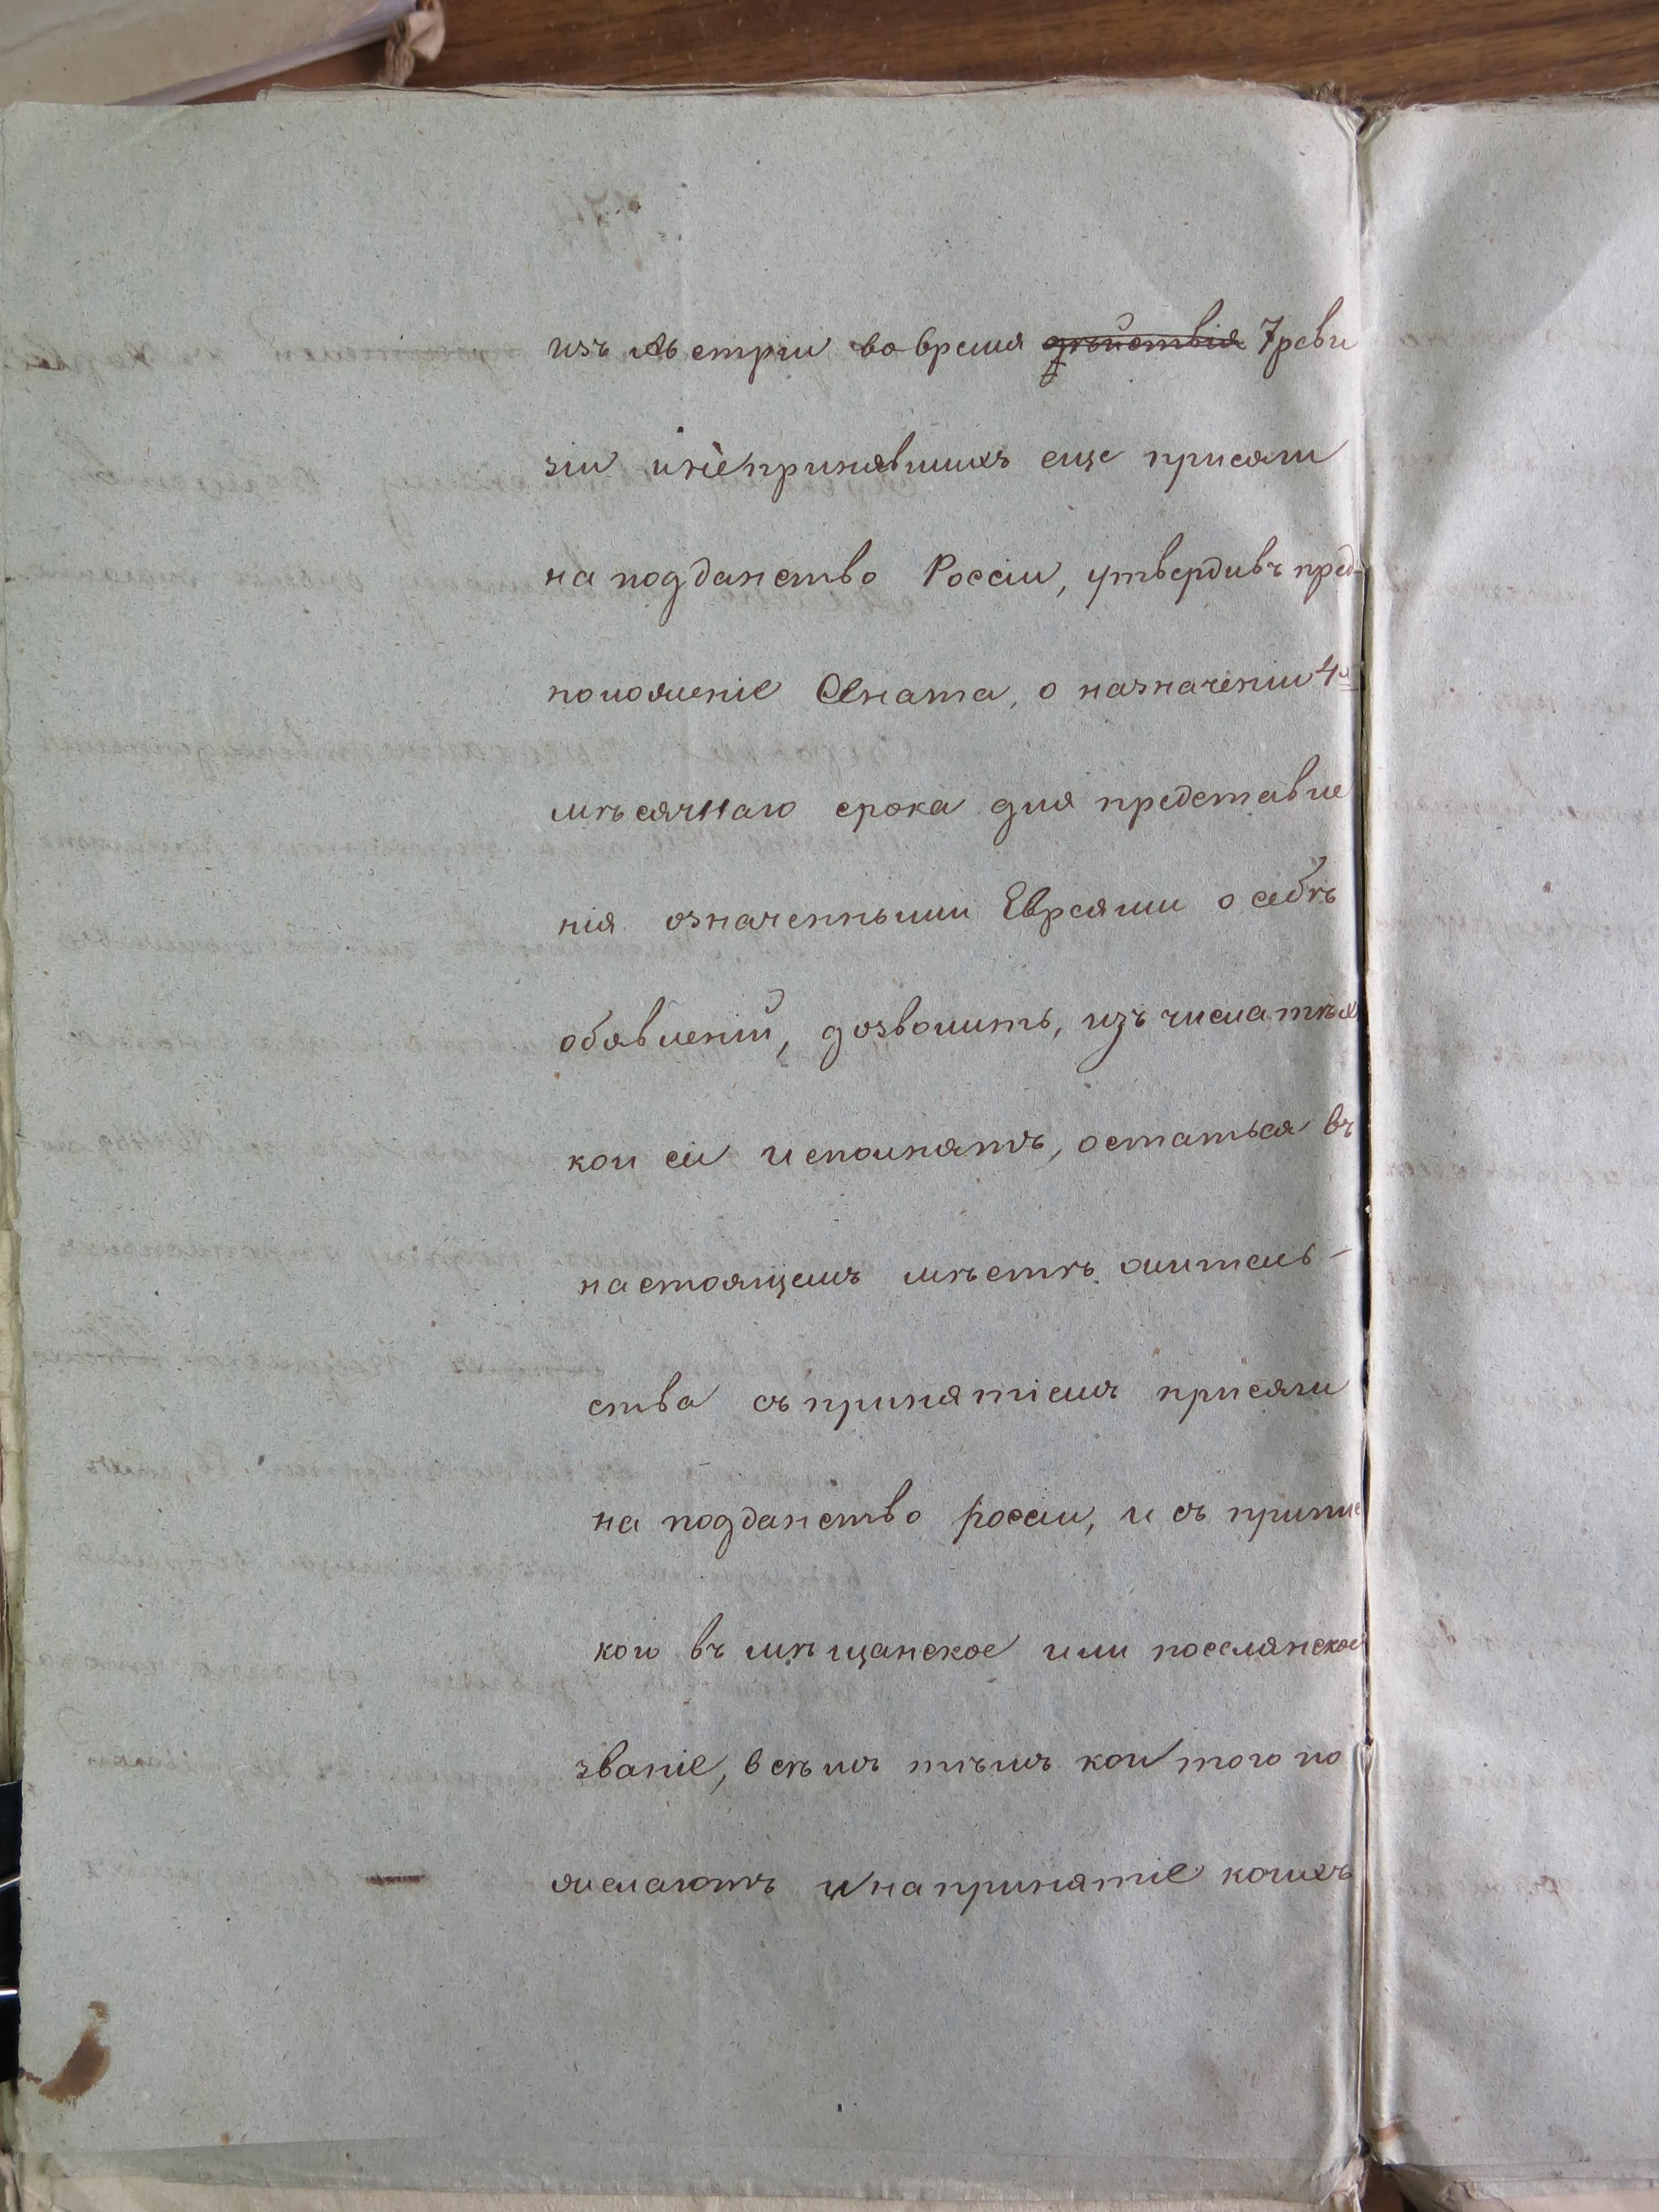 изъ Австріи во время дѣйствія 7 реви
зіи и непринявшихъ еще присяги
на подданство Россіи, утвердивъ пред-
положеніе Сената, о назначеніи 4х
мѣсячнаго срока для представле
нія означенными Евреями о себѣ
обявленій, дозволить, изъ числа тѣхъ
кои сіи исполнятъ, остаться въ
настоящемъ мѣстѣ житель-
ства съ принятіемъ присяги
на подданство россіи, и съ припис
кою въ мѣщанское или поселянское
званіе, всѣмъ тѣмъ кои того по
желаютъ и на принятіе коихъ